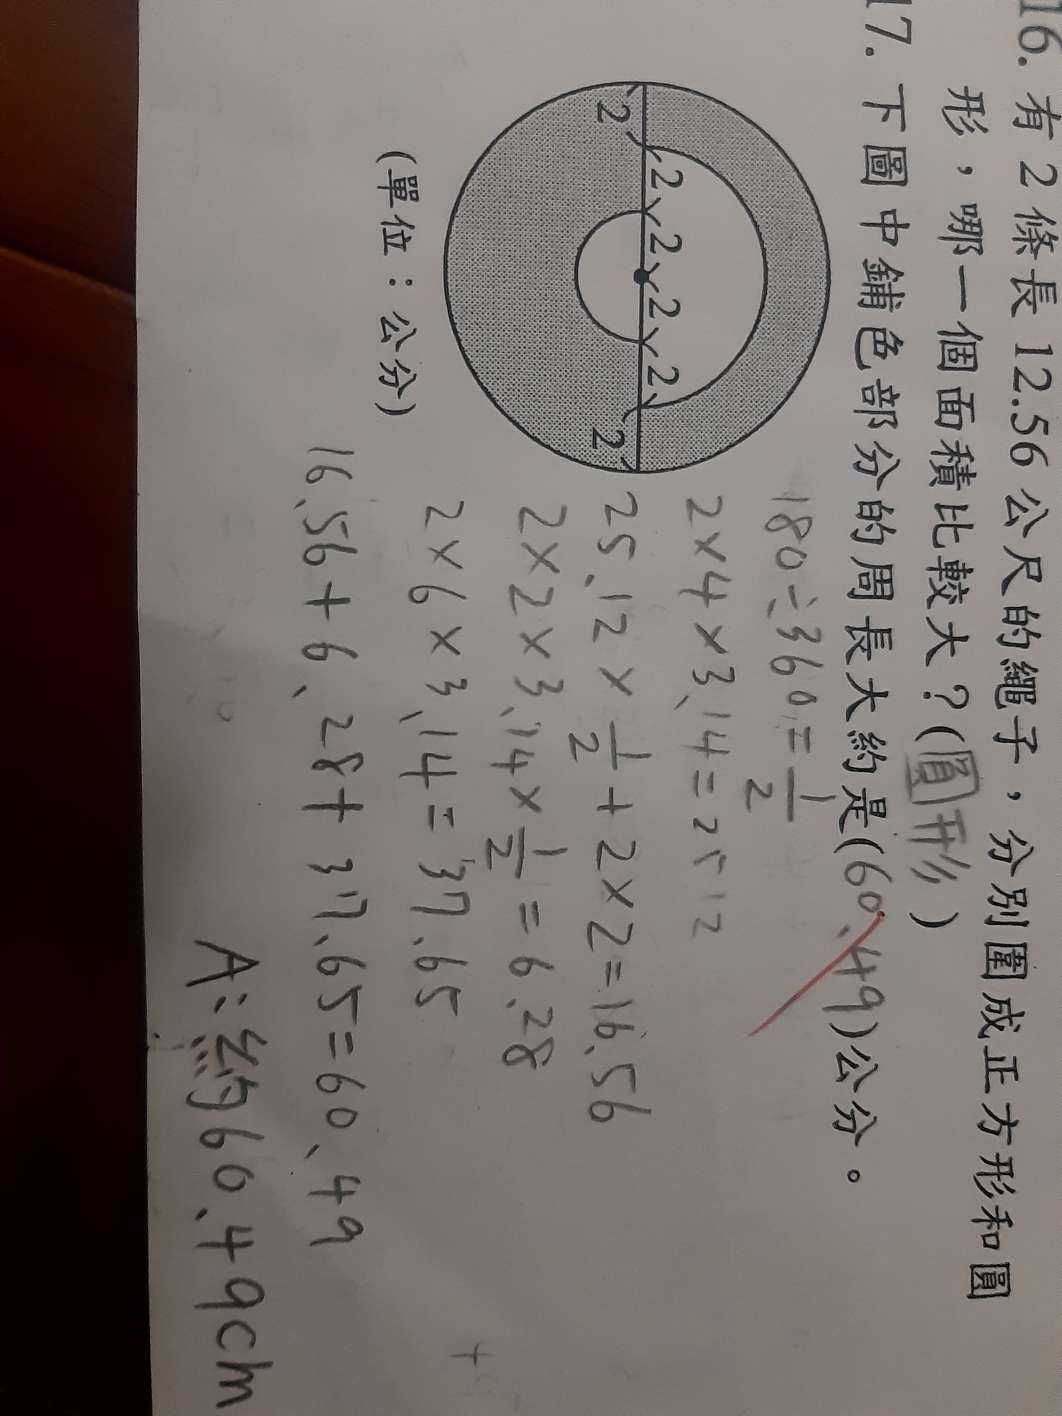 16. 有 2 條長 12.56 公尺的繩子，分別圍成正方形和圓
形，哪一個面積比較大？(圓形)
17. 下圖中鋪色部分的周長大約是(60.49)公分。
2 2 2 2 2 2
(單位：公分)
180÷360=1/2
2×4×3.14=25.12
25.12×1/2+2×2=16.56
2×2×3.14×1/2=6.28
2×6×3.14=37.65
16.56+6.28+37.65=60.49
A:約60.49cm